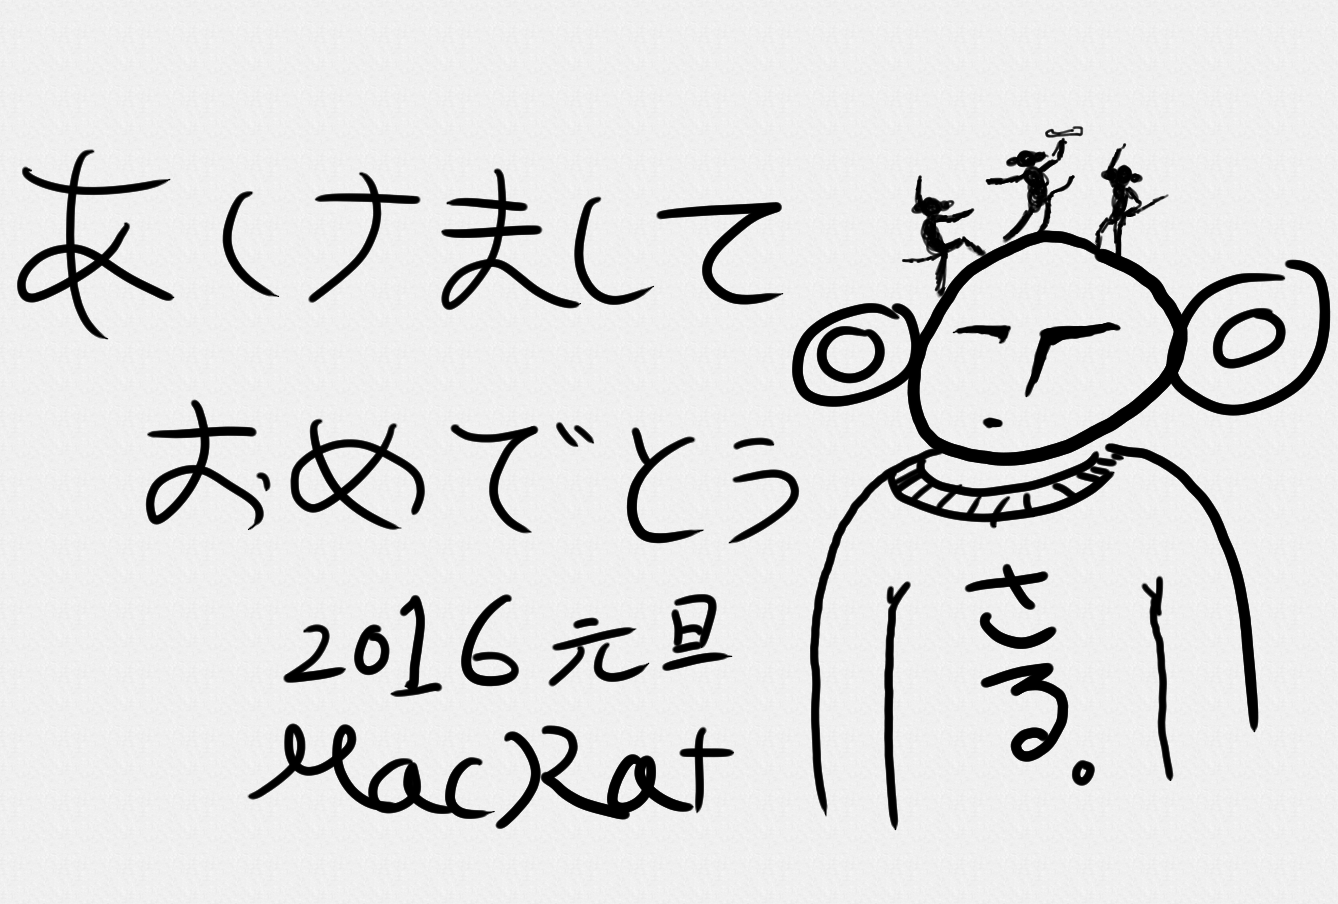 あけまして
おめでとう
2016 元旦
MacRat
さる。